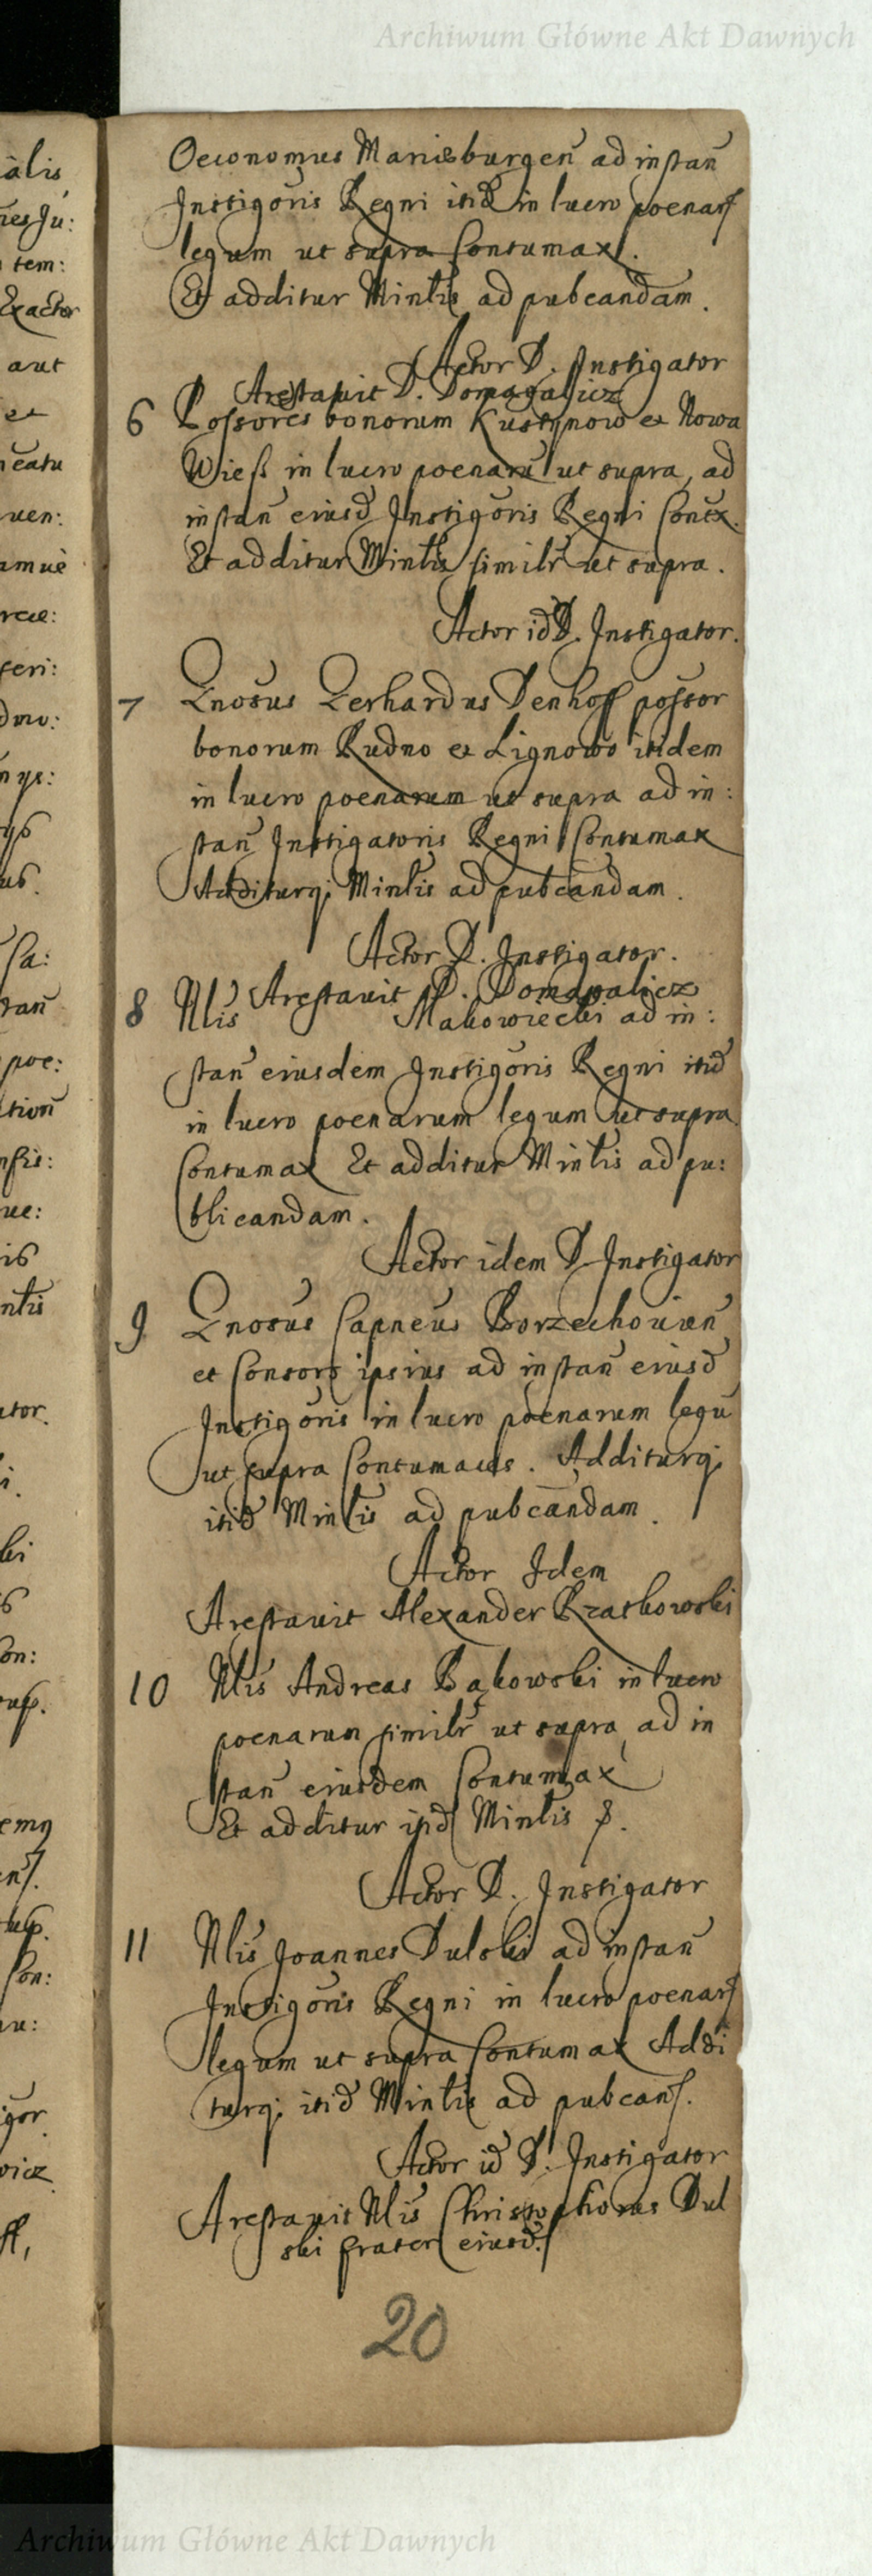 Archiwum Główne Akt Dawnych
Oeconomus Mariæburgen̄ ad instan̄
Instigōris Regni itid̄ in lucro poenar
legum ut supra Contumax.
Et additur Minlis ad pubcandam.
Actor D. Instigator
Arestavit D. Domagalicz
6 Possores bonorum et Nowa
Wieß in lucro poenarū ut supra, ad
instan̄ eiusd̄ Instigōris Regni Contx.
Et additur Minlis similr ut supra.
Actor id D. Instigator.
7 Gnosus Gerhardus Denhoff possor
bonorum Rudno et Lignowo itidem
in lucro poenarum ut supra ad in:
stan̄ Instigatoris Regni Contumax
Additurq; Minlis ad pubcandam.
Actor D. Instigator.
Arestavit D. Domagalicz
8 Nlis Makowiecki ad in:
stan̄ eiusdem Instigōris Regni itid̄
in lucro poenarum legum ut supra
Contumax Et additur Minlis ad pu:
blicandam.
Actor idem D. Instigator
9 Gnosus Capneus Borzechovien̄
et Consors ipsius ad instan̄ eiusd̄
Instigōris in lucro poenarum legū
ut supra Contumaces. Additurq;
itid̄ Minlis ad pubcandam.
Actor Idem
Arestavit Alexander Rzatkowski
10 Nlis Andreas Bąkowski in lucro
poenarum similr ut supra, ad in
stan̄ eiusdem Contumax
Et additur Minlis
Actor D. Instigator
11 Nlis Joannes Dulski ad instan̄
Instigōris Regni in lucro poenar
legum ut supra Contumax Addi
turq; itid̄ Minlis ad pubcan.
Actor id̄ D. Instigator
Arestavit Nlis Christophorus Dul
ski frater eiusd̄.
20
Archiwum Główne Akt Dawnych